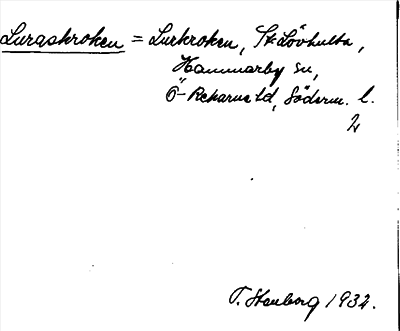 Luraskroken = Lurkroken, St. Lövhulta,
Hammarby sn,
Ö-Rekarne hd, Söderm. l.
T. Stenberg 1932.